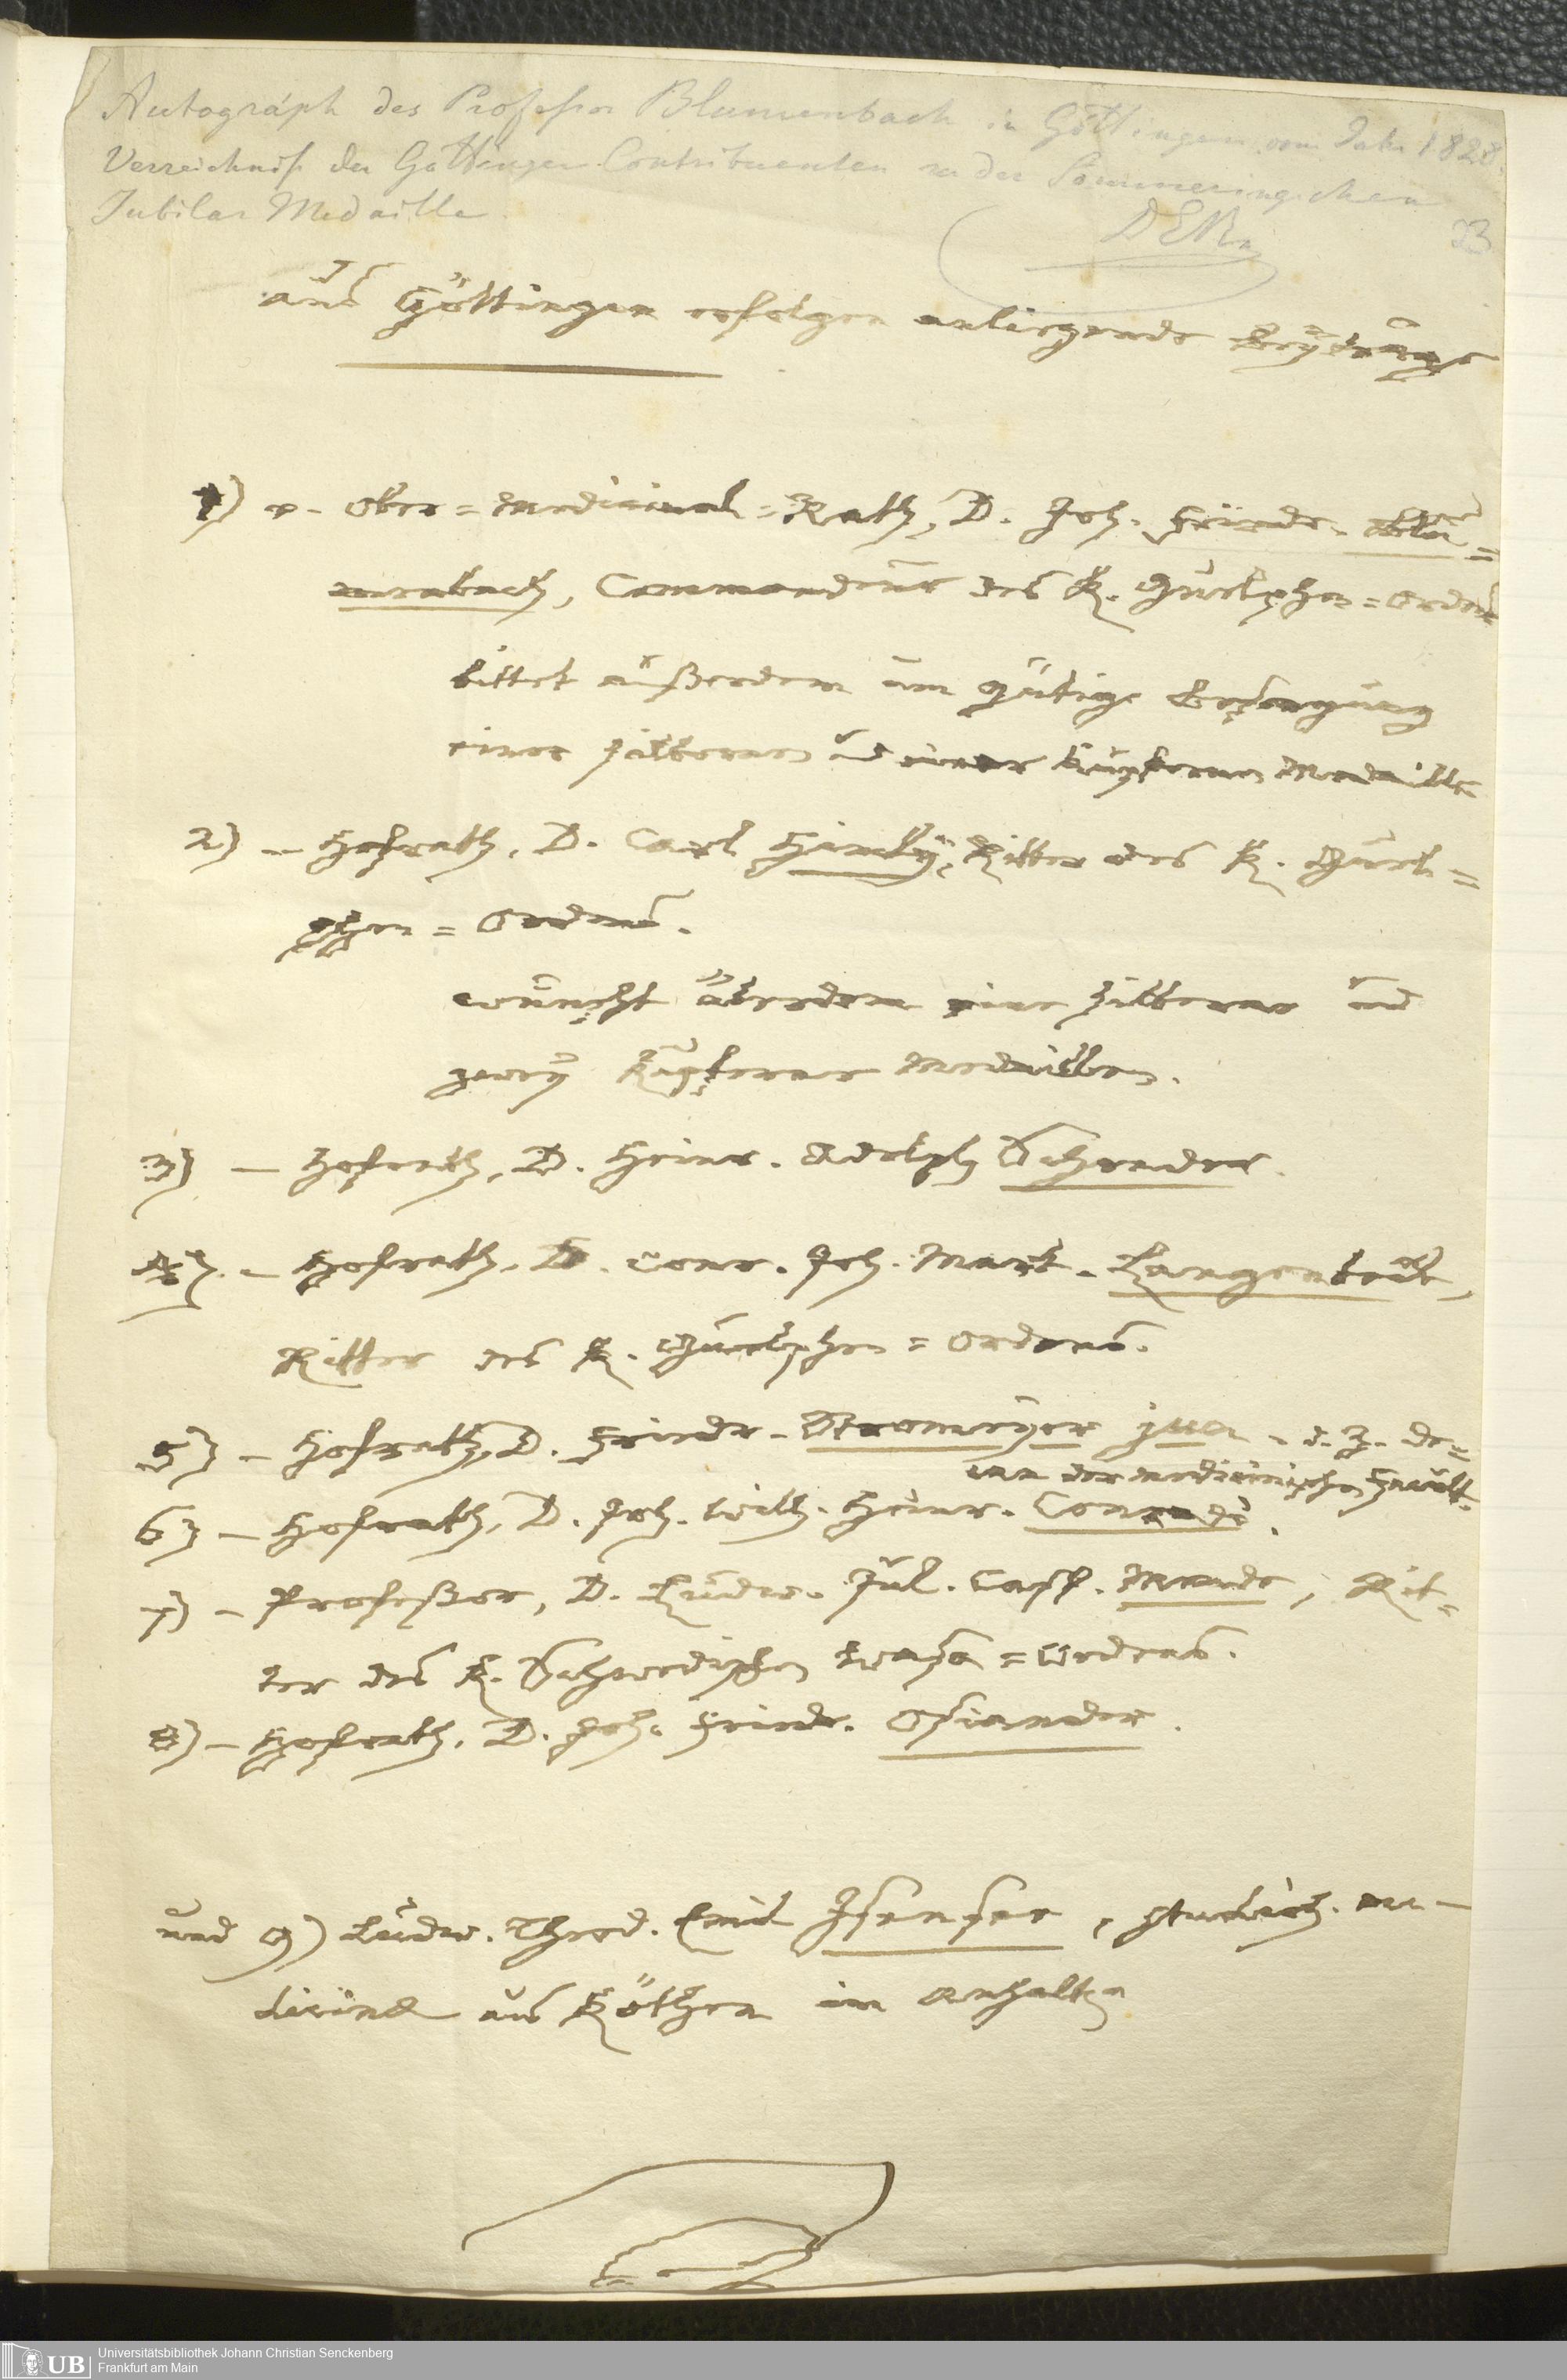 Autograph des Professor Blumenbach in Göttingen vom Jahr 1828.
Verzeichniß der Göttinger Contribuenten zu der Sömmeringschen
Jubilar Medaille.
23
aus Göttingen erfolgen anliegende Beyträge
1) v. Ober=Medicinal=Rath, D. Joh. Friedr. Blu=
menbach, Commandeur des K. Guelphen=Ordens
bittet außerdem um gütige Besorgung
einer silbernen und einer kupfernen Medaille
2) – Hofrath, D. Carl Himly, Ritter des K. Guel=
phen=Ordens.
wünscht überdem eine silberne und
zwey kupferne Medaillen.
3) – Hofrath, D. Heinr. Adolph Schrader.
4) – Hofrath, D. Conr. Joh. Mart. Langenbek,
Ritter des K. Guelphen=Ordens.
5) – Hofrath, D. Friedr. Stromeyer jun. d. Z. De=
can der medicinischen Facult.
6) – Hofrath, D. Joh. Wilh. Heinr. Conradi.
7) – Professor, D. Ludw. Jul. Casp. Mende, Rit=
ter des K. Schwedischen Wasa=Ordens.
8) – Hofrath, D. Joh. Friedr. Osiander.
und 9) Ludw. Theod. Emil Isensee, studios. me–
dicinae aus Köthen im Anhaltschen
UB
Universitätsbibliothek Johann Christian Senckenberg
Frankfurt am Main